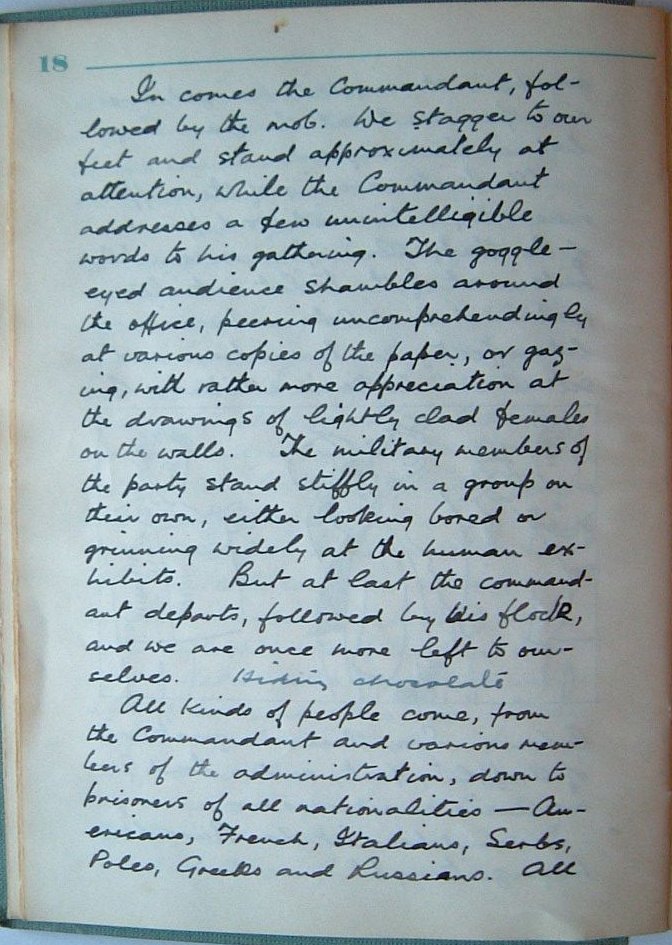 18
In comes the Commandant, fol-
lowed by the mob. We stagger to our
feet and stand approximately at
attention, while the Commandant
addresses a few unintelligible
words to his gathering. The goggle-
eyed audience shambles around
the office, peering uncomprehendingly
at various copies of the paper, or gaz-
ing, with rather more appreciation at
the drawings of lightly clad females
on the walls. The military members of
the party stand stiffly in a group on
their own, either looking bored or
grinning widely at the human ex-
hibits. But at last the command-
ant departs, followed by his flock,
and we are once more left to our-
selves. Hiding chocolate
All kinds of people come, from
the Commandant and various mem-
bers of the administration, down to
prisoners of all nationalities — Am-
ericans, French, Italians, Serbs,
Poles, Greeks and Russians. All